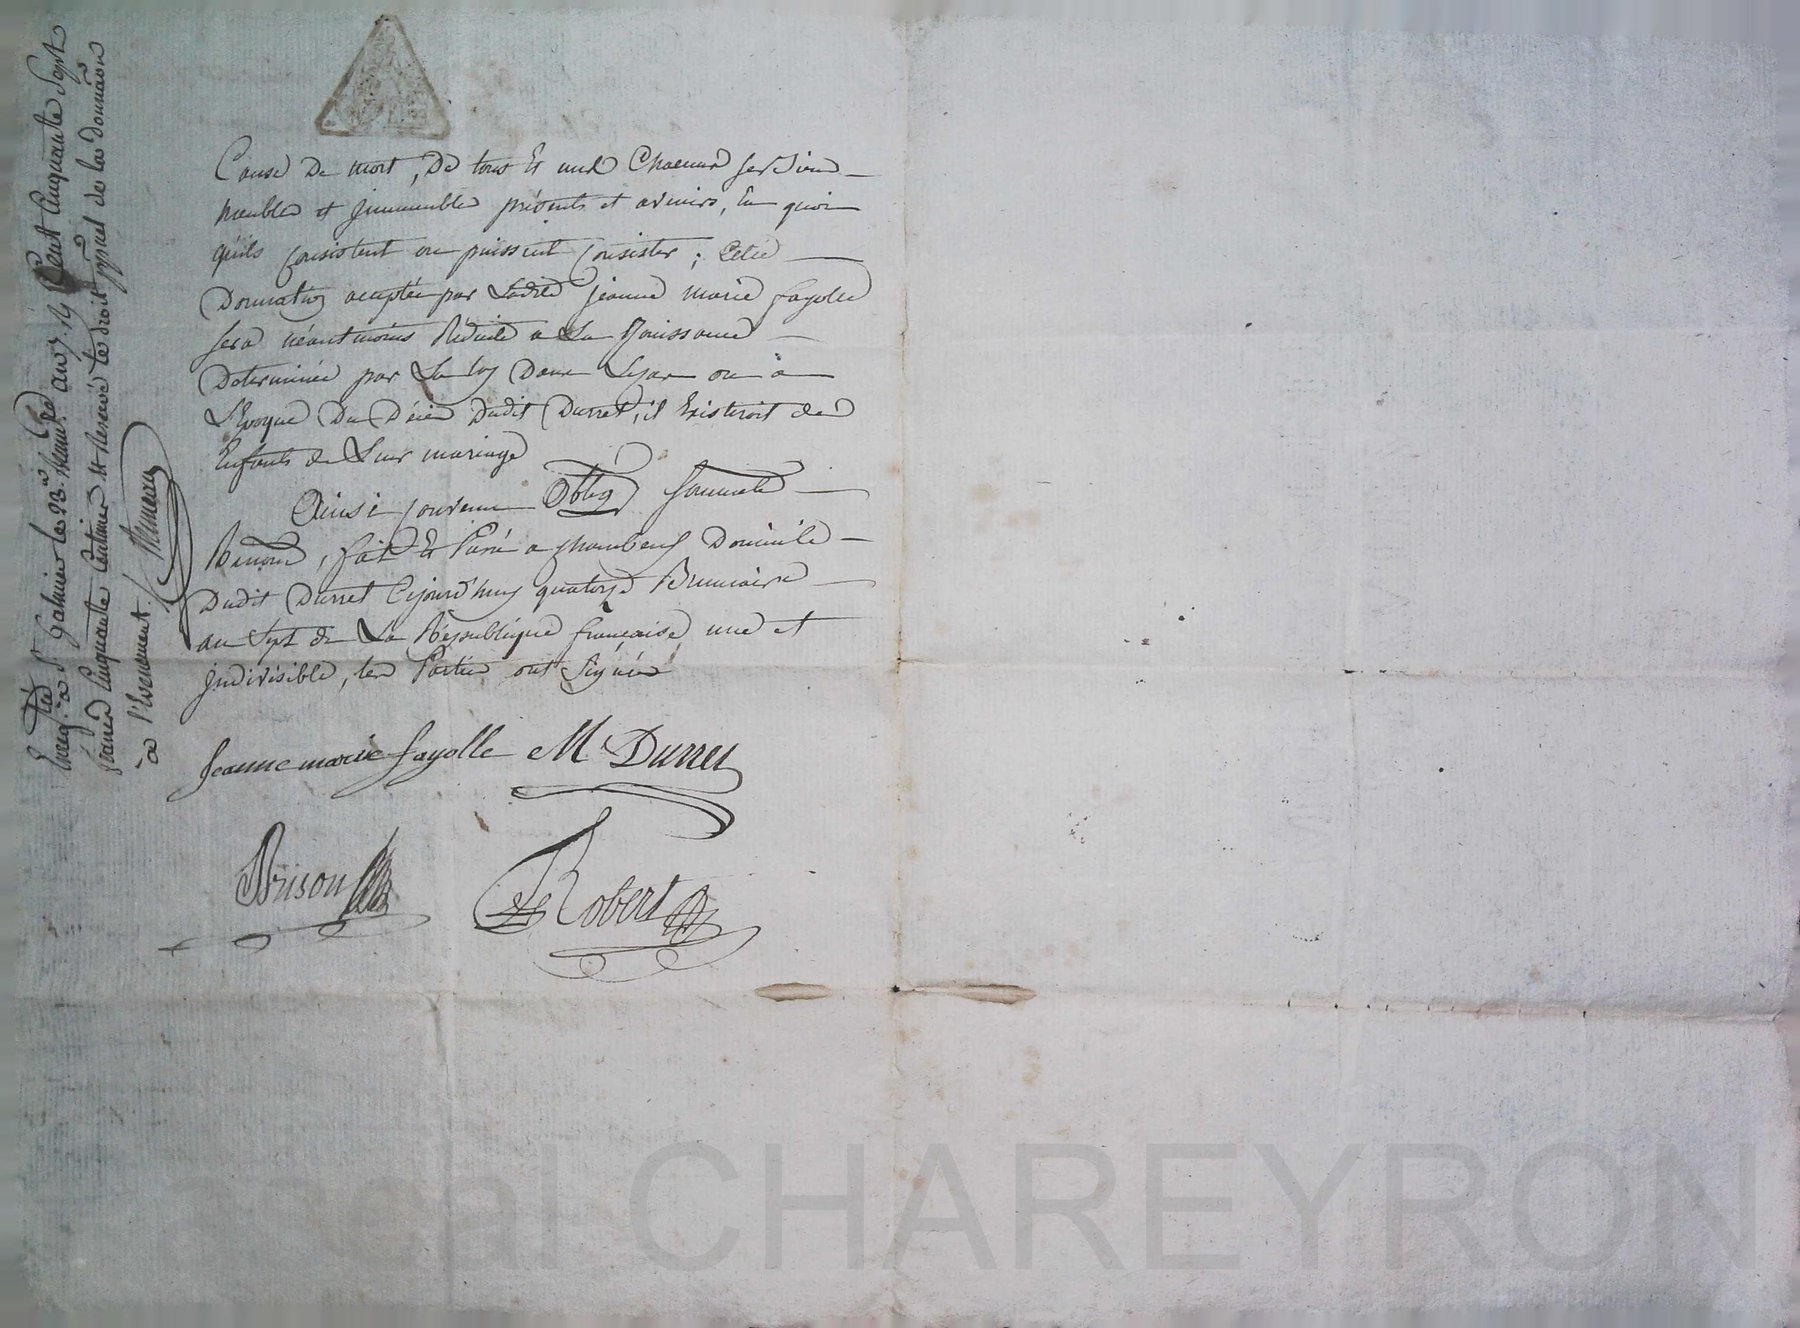 Cause De mort, De tous Et un Chacun ses Biens
meubles et Jmmeubles présents et avenirs, En quoi
quils consistent ou puissent consister ; Cette
Donnation acceptée par Ladite jeanne marie fayolle
sera néantmoins Réduite a La Jouissance
Determinée par La loy Dans Le cas ou à
L'Epoque Du Décès Dudit Durret, il Existeroit des
Enfants de Leur mariage
Ainsi convenu Oblig
Renon, fait Et Passé a chambeuf Domicile
Dudit Durret Cejourd'huy quatorze Brumaire
an Sept de La République française, une et
jndivisible, les Parties ont Signées
Jeanne marie fayolle M Durret
Brison
Robert
Enreg. à St Galmier le 23 an 7. Cent Cinquante Sept
francs Cinquante Centimes et Reservé le droit de la donnation
à l'Evenement.
Pascal CHAREYRON